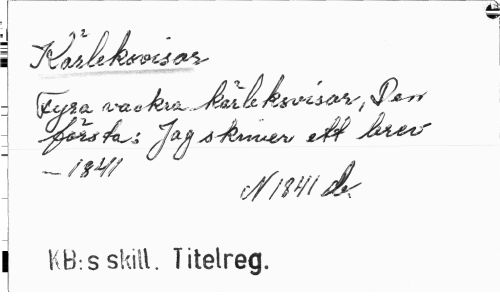 Kärleksvisor
Fyra vackra kärleksvisor, Den
första: Jag skriver ett brev
— 1841
N 1841 d.
KB:s skill. Titelreg.